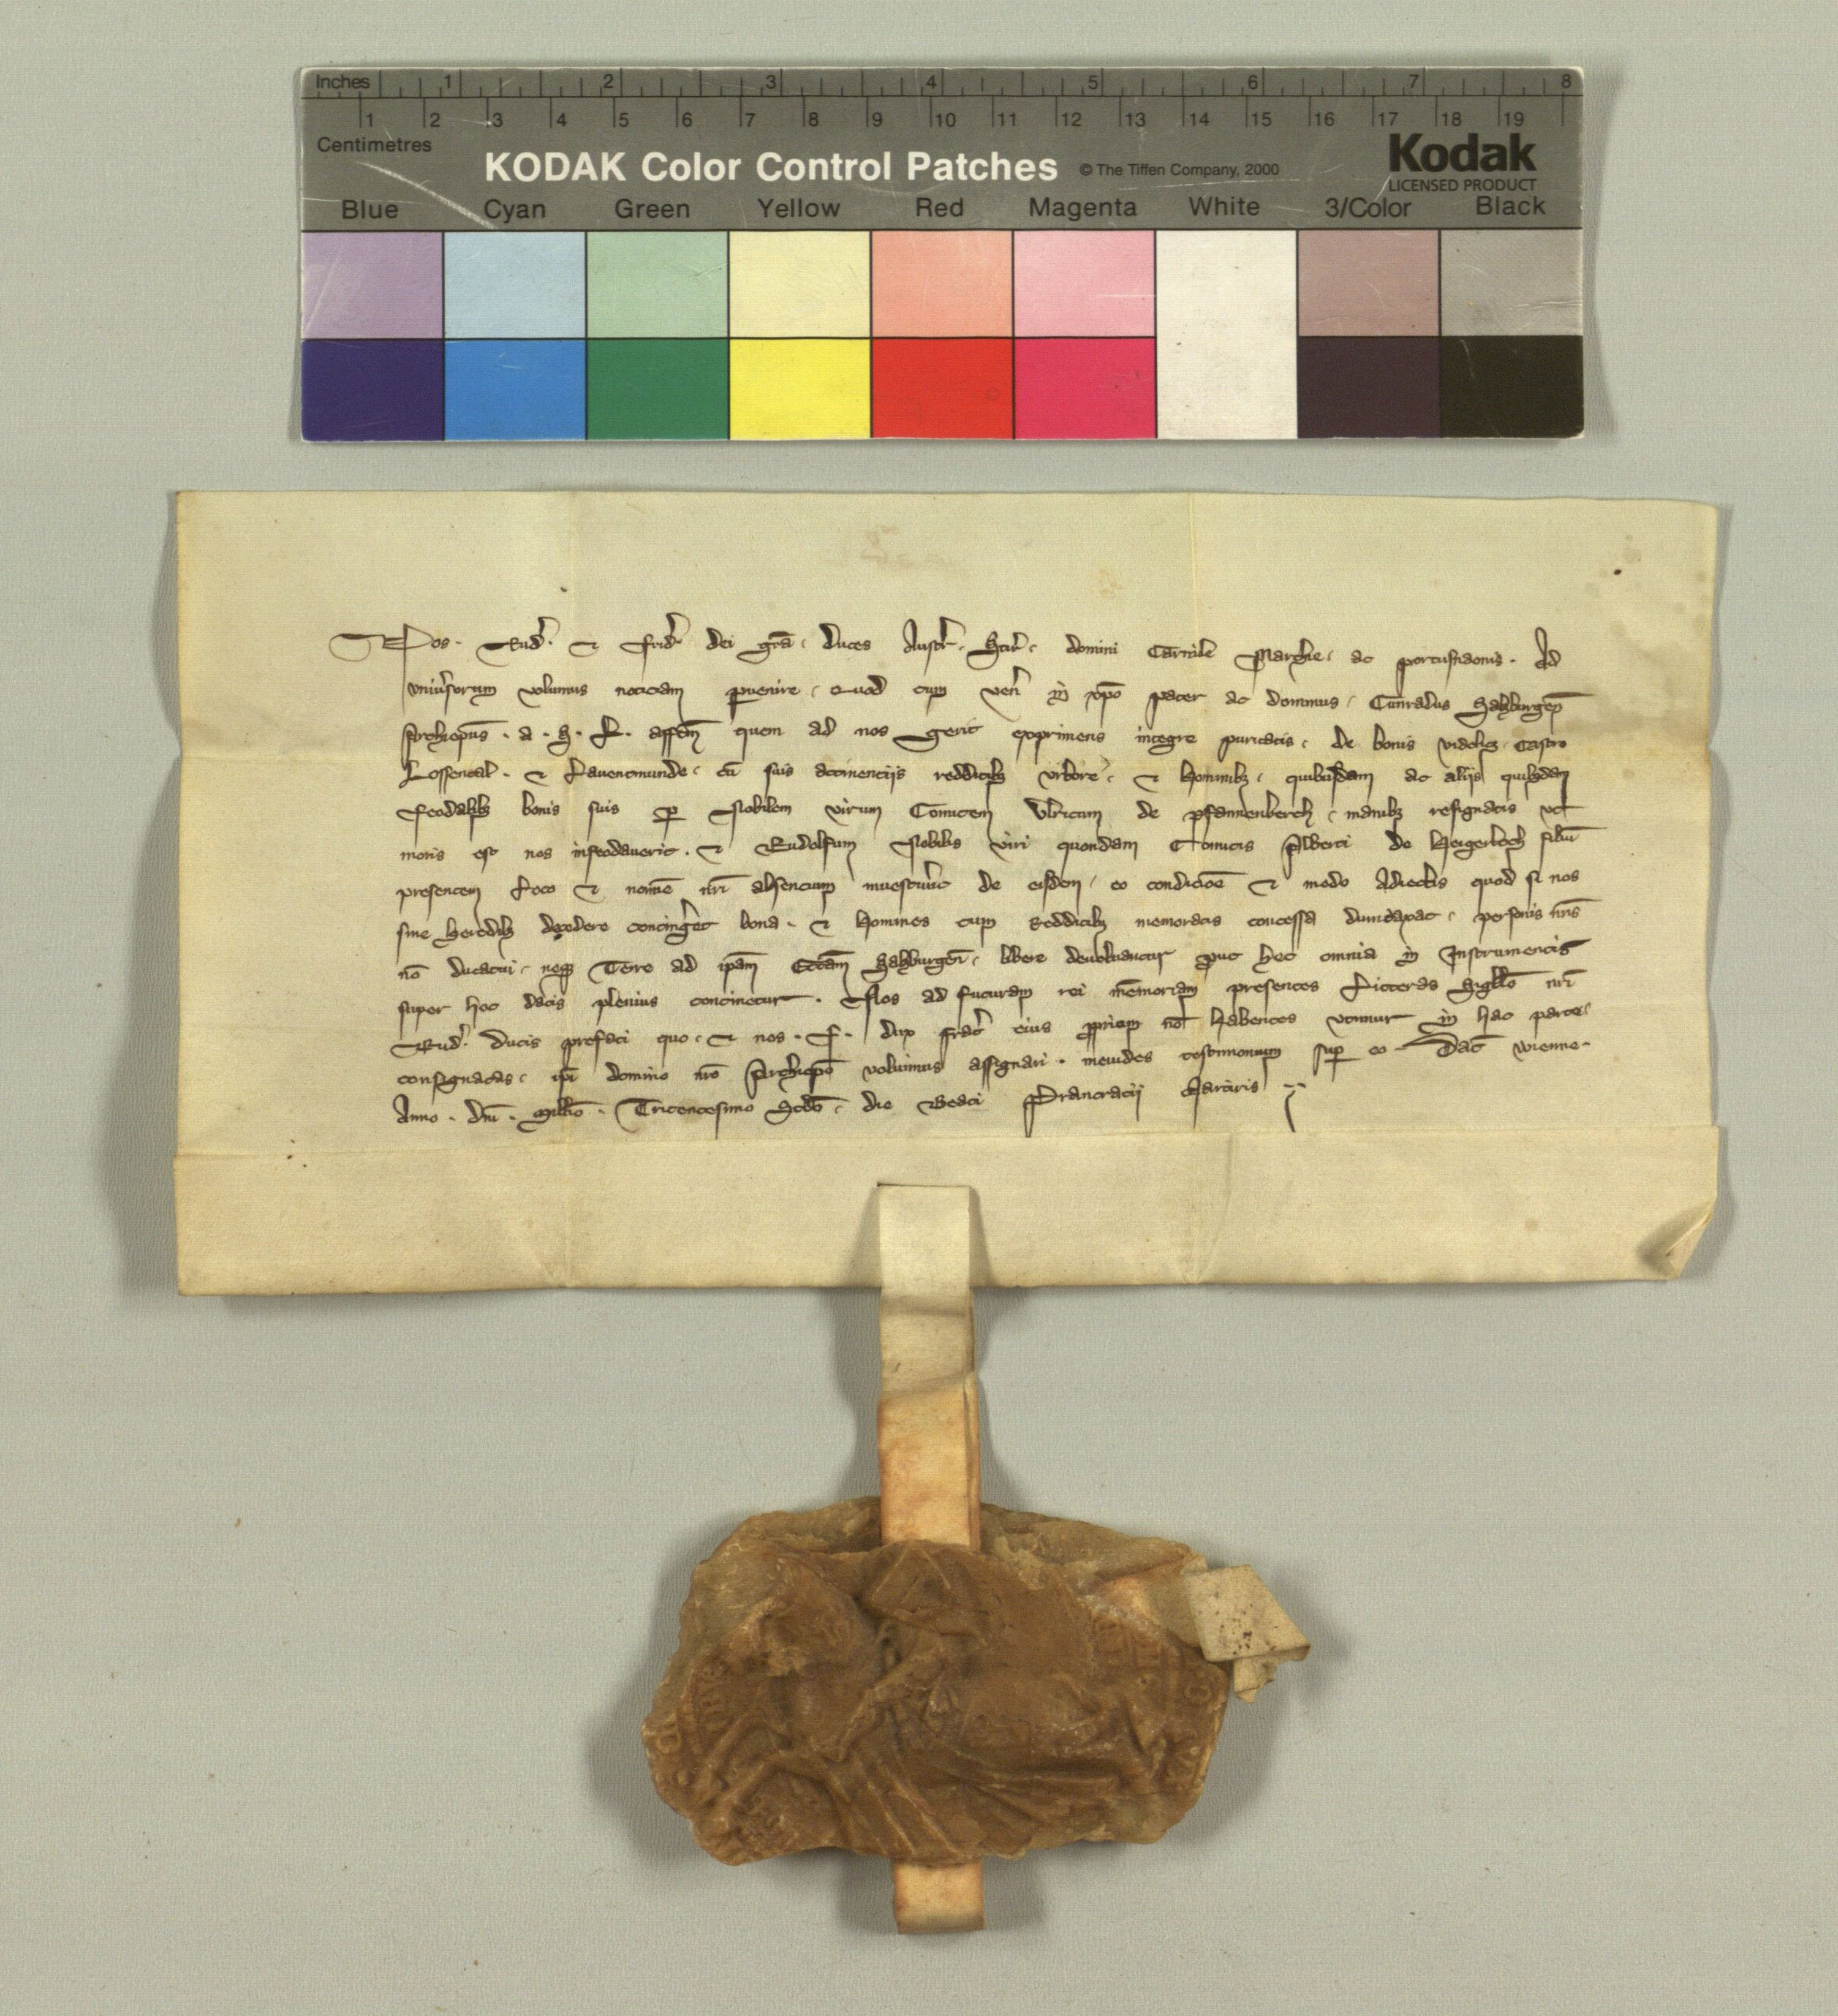 Inches 1 2 3 4 5 6 7 8
1 2 3 4 5 6 7 8 9 10 11 12 13 14 15 16 17 18 19
Centimetres
KODAK Color Control Patches © The Tiffen Company, 2000 Kodak
LICENSED PRODUCT
Blue Cyan Green Yellow Red Magenta White 3/Color Black
Nos. Rud. et Frid. dei gr̄a. duces Austr. Stir. domini Carniole Marchie. ac portusnaonis. Ad
vniu̓sorum volumus noticiam ꝑuenire. Quod cum ven̄ in xp̄o pater ac dominus. Cunradus Salzburgen̄
Archiep̄us. a. s. L. affc̄m quem ad nos gerit exprimens integre puritatis. de bonis videlicꝫ. Castro
Lossental. et Lauentmunde. cū suis attinentijs redditibꝫ vrbore. et hominibꝫ. quibusdam ac alijs quibꝫdam
feodalibꝫ bonis suis ꝑ Nobilem virum Comitem Vlricum de pfannenberch. manibꝫ resignatis vt
moris est nos infeodauerit. et Rudolfum Nobilis viri quondam Comitis Alberti de Heigerloch filiū
presentem Loco et nomīe nr̄i absentium inuestiu̓it de eisdem. eo condicōe et modo Adiectis quod si nos
sine heredibꝫ decedere conting̓et bona. et homines cum Redditibꝫ memoratis concessa dumtaxat. personis nr̄is
nō ducatui. neqꝫ Terre ad ip̄am Eccl̄am Salzburgen̄. libere deuoluantur ꝓut hec omnia in Instrumentis
super hoc datis plenius continetur. Nos ad futuram rei mēmoriam presentes Litteras Sigillo nr̄i
Rud. ducis prefati quo. et nos. F. dux frat̓ eius ꝓprium nō habentes vtimur in hac parte.
consignatas. ip̄i domino nr̄o Archiep̄o voluimus assignari. in euidēs testimonium suꝑ eo. Dat̄ wienne.
Anno. dn̄i. Mill̄o. Tricentesimo Scd̄o. die Beati Prancratij Martiris